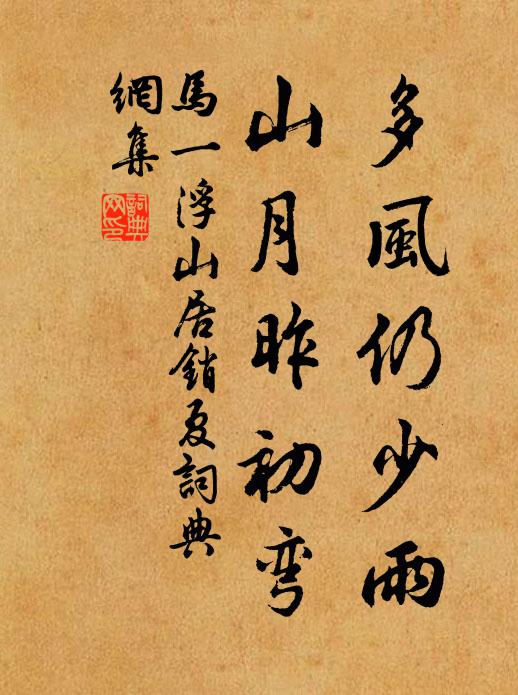 多風仍少雨
山月昨初弯
馬一浮山居銷夏詞典
網集
詞典网印